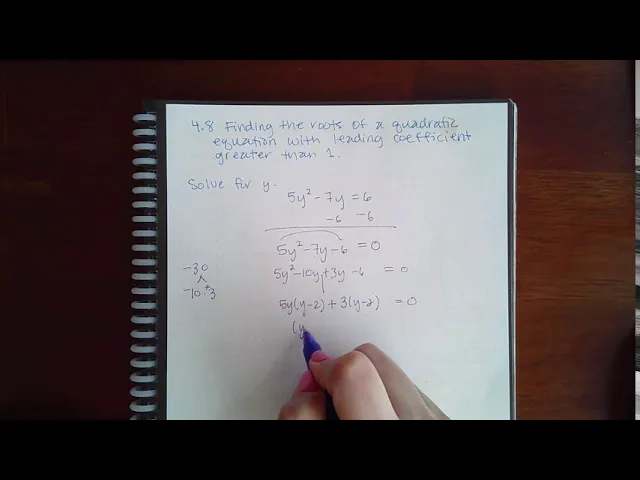 4.8 Finding the roots of a quadratic
equation with leading coefficient
greater than 1.
Solve for y.
5y² - 7y = 6
-6 -6
5y² - 7y - 6 = 0
-30
5y² - 10y + 3y - 6 = 0
-10 · +3
5y(y-2) + 3(y-2) = 0
(y